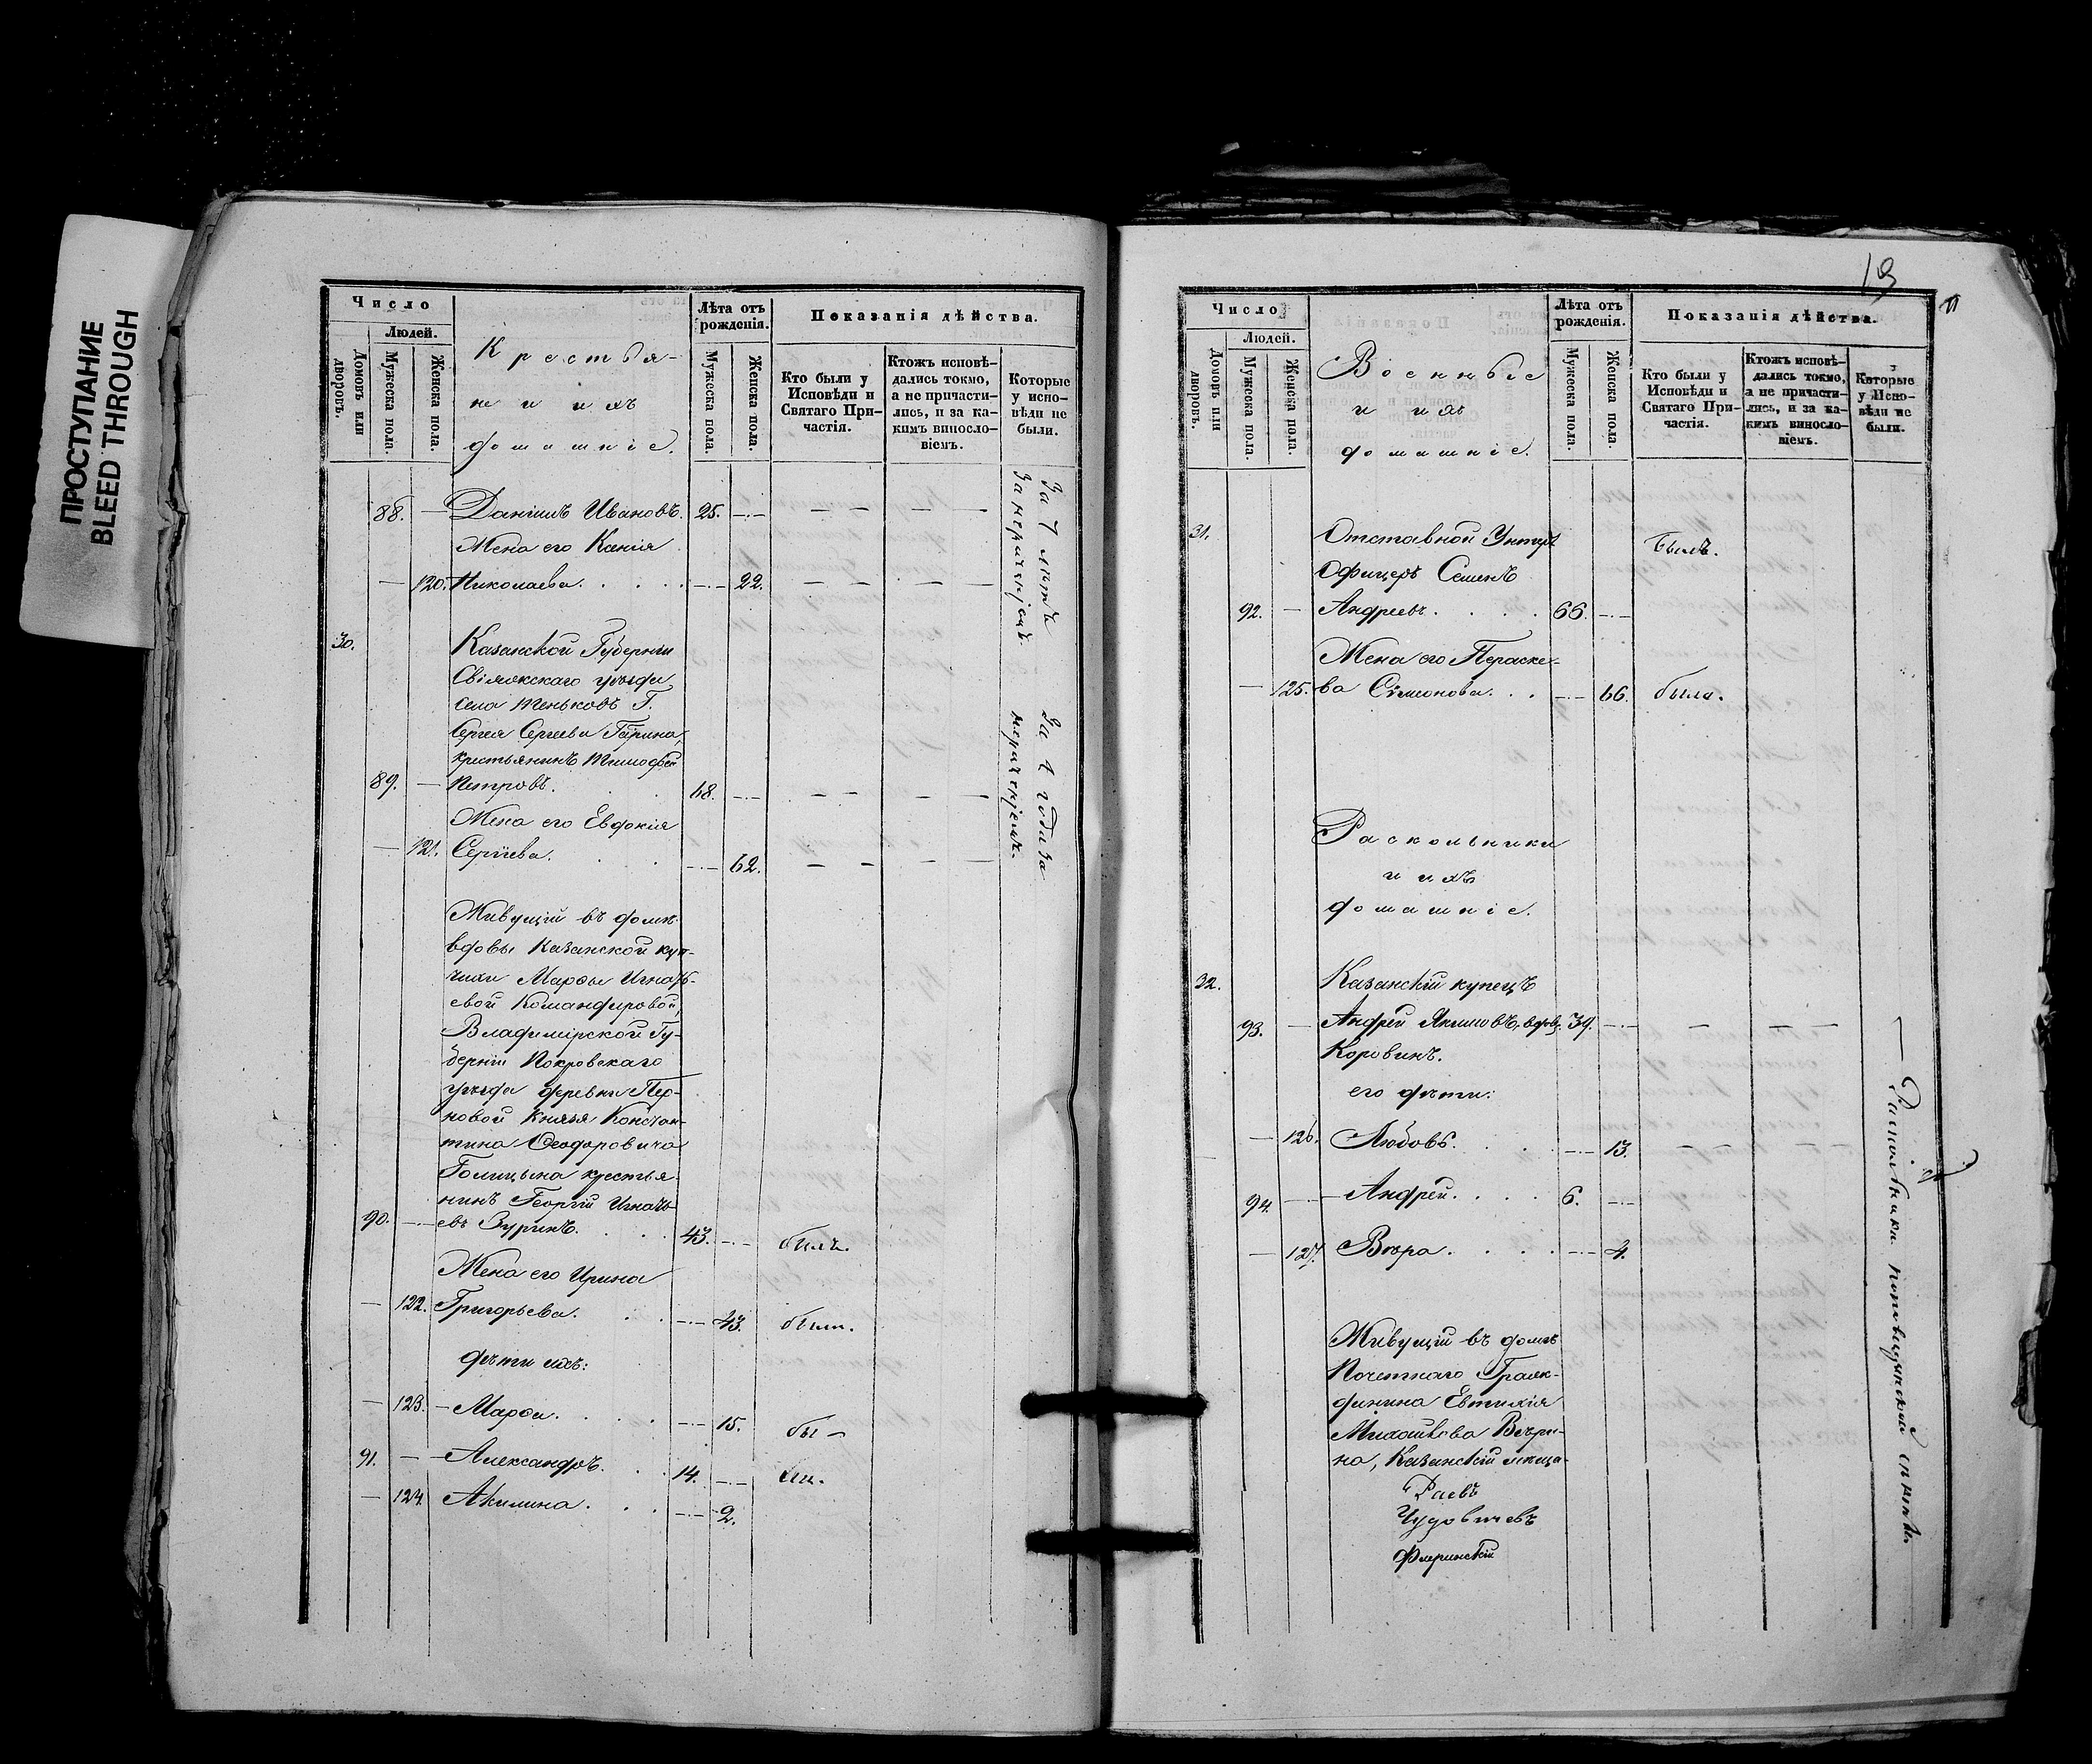 ПРОСТУПАНИЕ
BLEED THROUGH
Число
Людей.
Домовъ или дворовъ.
Мужеска пола.
Женска пола.
Крестья-
не и ихъ
домашніе.
Лѣта отъ рожденія.
Мужеска пола.
Женска пола.
Показанія дѣйства.
Кто были у Исповѣди и Святаго Причастія.
Ктожъ исповѣдались токмо, а не причастились, и за какимъ винословіемъ.
Которые у исповѣди не были.
88. — Даніилъ Ивановъ. 25. — — — — —
Жена его Ксенія
— 120. Николаева. — 22. — — — —
За 7 лѣтъ
За нерачніемъ.
30. Казанской Губерніи
Свіяжскаго уѣзда
села Теньковъ Г.
Сергея Сергеева
крестьянинъ Тимофей
89. — Петровъ. 68. — — — — —
Жена его Евдокія
— 121. Сергіева. — 62. — — — —
За 4 года за
Живущій въ домѣ
вдовы Казанской куп-
чихи Марфы Игнать-
евой Командировой,
Владимірской Гу-
берніи Покровскаго
уѣзда деревни Пер-
новой Князя Констан-
тина Ѳеодоровича
Голицына крестья-
нинъ Георгій Игнать-
90. — евъ Зуринъ. 43. — былъ.
Жена его Ирина
— 122. Григорьева. — 43. была.
дѣти ихъ:
— 123. — Марѳа. — 15. бы —
91. — Александръ. 14. —
— 124. Акилина. — 2.
19
Число
Людей.
Домовъ или дворовъ.
Мужеска пола.
Женска пола.
Военные
и ихъ
домашніе.
Лѣта отъ рожденія.
Мужеска пола.
Женска пола.
Показанія дѣйства.
Кто были у Исповѣди и Святаго Причастія.
Ктожъ исповѣдались токмо, а не причастились, и за какимъ винословіемъ.
Которые у Исповѣди не были.
31. Отставной Унтеръ былъ.
Офицеръ Семенъ
92. — Андреевъ. 66. —
Жена его Параске-
— 125. ва Симеонова. — 66. была.
Раскольники
и ихъ
домашніе.
32. Казанскій купецъ
93. — Андрей Якимовъ, вдовъ. 39. — — — —
Коровинъ.
его дѣти:
— 126. Любовь. — 13. — — —
94. — Андрей. 6. —
— 127. Вѣра. — 4.
— Раскольники поповщинской секты.
Живущій въ домѣ
Почетнаго Граж-
данина Евтихія
Михайлова
на, Казанскій мѣща-